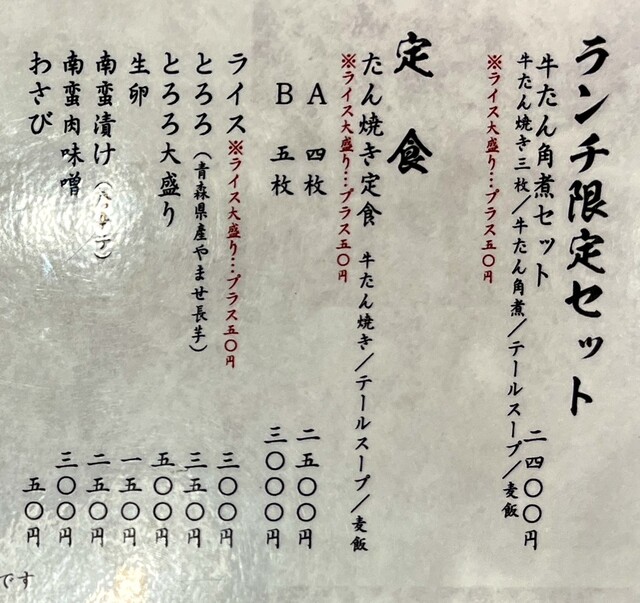 ランチ限定セット
牛たん角煮セット 二四〇〇円
牛たん焼き三枚／牛たん角煮／テールスープ／麦飯
※ライス大盛り…プラス五〇円
定食
たん焼き定食 牛たん焼き／テールスープ／麦飯
※ライス大盛り…プラス五〇円
A 四枚 二五〇〇円
B 五枚 三〇〇〇円
ライス ※ライス大盛り…プラス五〇円 三〇〇円
とろろ（青森県産やませ長芋） 三五〇円
とろろ大盛り 五〇〇円
生卵 一五〇円
南蛮漬け 二五〇円
南蛮肉味噌 三〇〇円
わさび 五〇円
です